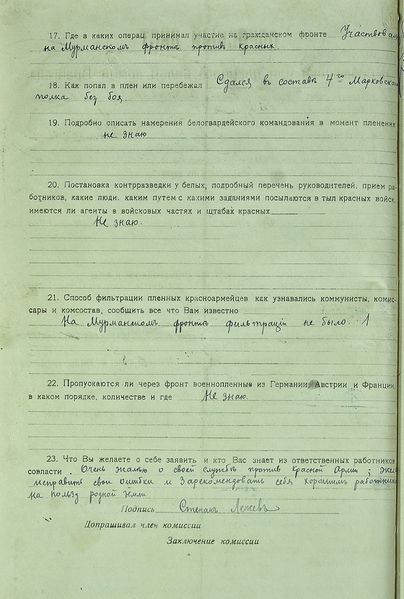 17. Где в каких операц. принимал участие на гражданском фронте Участвовал
на Мурманскомъ фронтѣ противъ красныхъ.
18. Как попал в плен или перебежал Сдался въ составѣ 4го Марковскаго
полка без боя.
19. Подробно описать намерения белогвардейского командования в момент пленения
не знаю
20. Постановка контрразведки у белых, подробный перечень руководителей, прием ра-
ботников, какие люди, каким путем с какими заданиями посылаются в тыл красных войск,
имеются ли агенты в войсковых частях и штабах красных
Не знаю.
21. Способ фильтрации пленных красноармейцев как узнавались коммунисты, комис-
сары и комсостав, сообщить все что Вам известно
На Мурманскомъ фронтѣ фильтраціи не было.
22. Пропускаются ли через фронт военнопленные из Германии, Австрии и Франции,
в каком порядке, количестве и где Не знаю.
23. Что Вы желаете о себе заявить и кто Вас знает из ответственных работников
совласти. Очень жалью о своей службѣ противъ Красной Арміи;
исправить свои ошибки и Зарекомендовать себя хорошимъ работникомъ
на пользу родной
Подпись Степанъ
Допрашивал член комиссии
Заключение комиссии